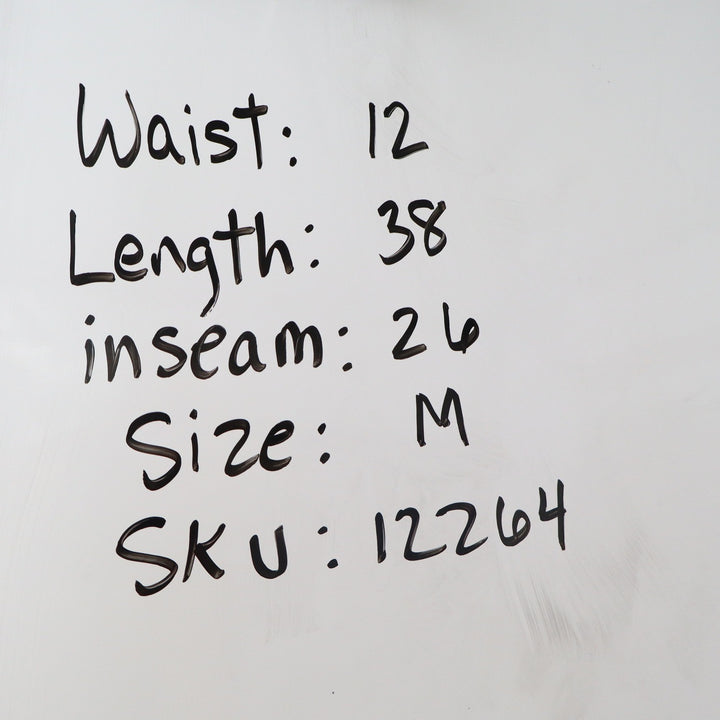 Waist: 12
Length: 38
inseam: 26
Size: M
SKU: 12264